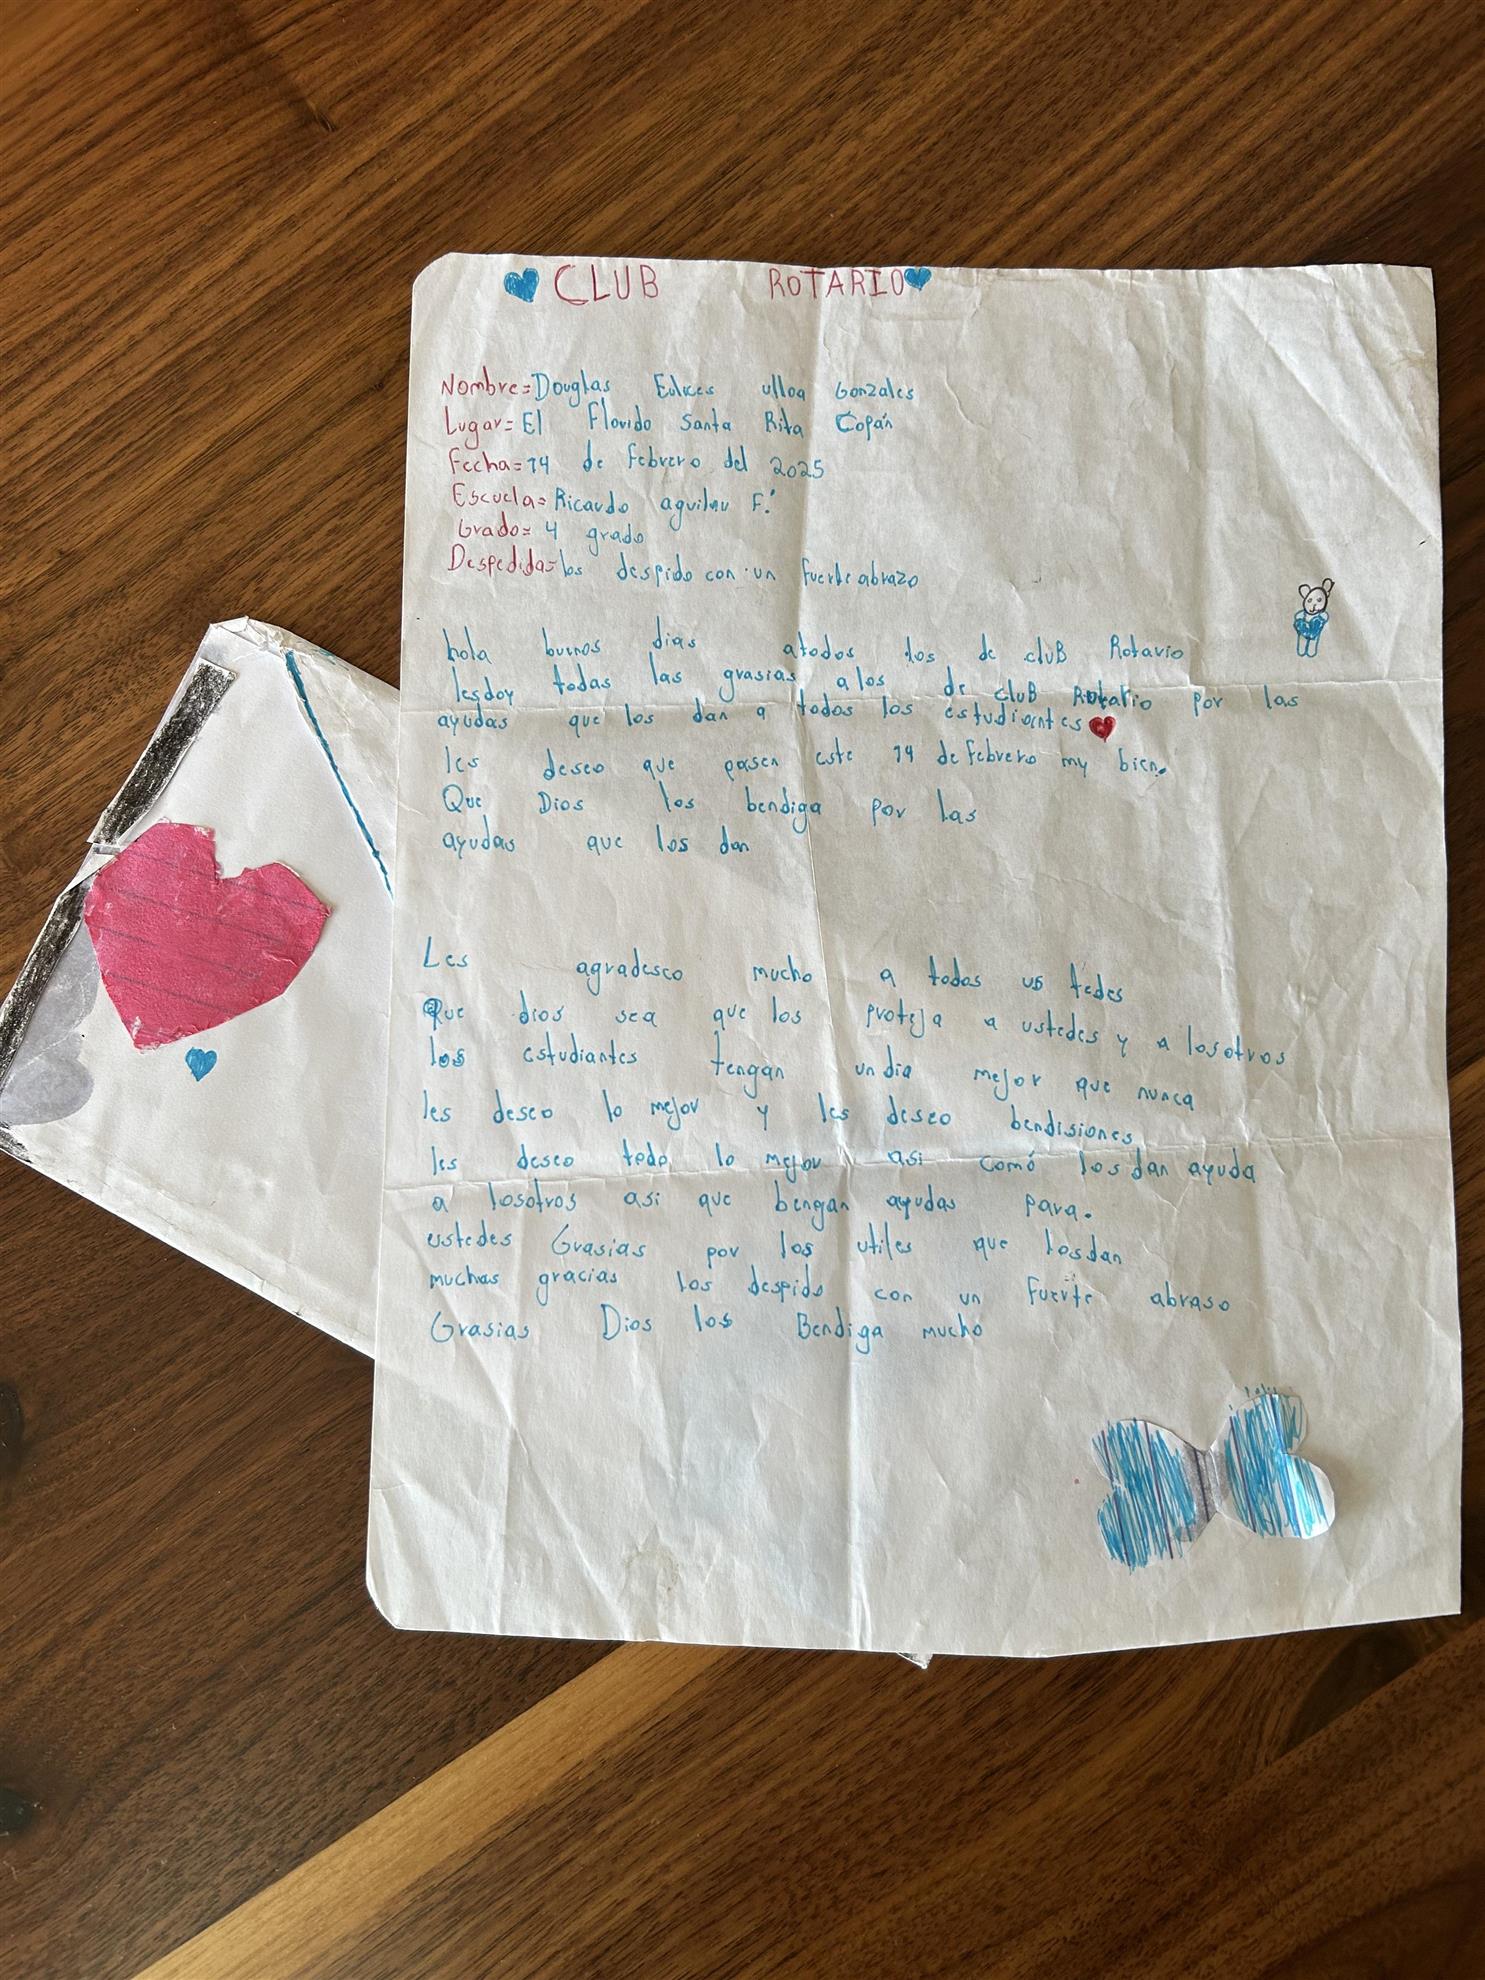 CLUB ROTARIO
Nombre= Douglas Eulices ulloa Gonzales
Lugar= El Florido Santa Rita Copán
Fecha= 14 de febrero del 2025
Escuela= Ricardo aguilar F.
Grado= 4 grado
Despedida= los despido con un fuerte abrazo
hola buenos dias atodos los de cluB Rotario
lesdoy todas las grasias a los de cluB Rotario por las
ayudas que los dan a todos los estudiantes
les deseo que pasen este 14 de febrero my bien.
Que Dios los bendiga por las
ayudas que los dan
Les agradesco mucho a todos us tedes
Que dios sea que los proteja a ustedes y a losotros
los estudiantes tengan un dia mejor que nunca
les deseo lo mejor y les deseo bendisiones
les deseo todo lo mejor asi comó losdan ayuda
a losotros asi que bengan ayudas para.
ustedes Grasias por los utiles que losdan
muchas gracias los despido con un fuerte abraso
Grasias Dios los Bendiga mucho